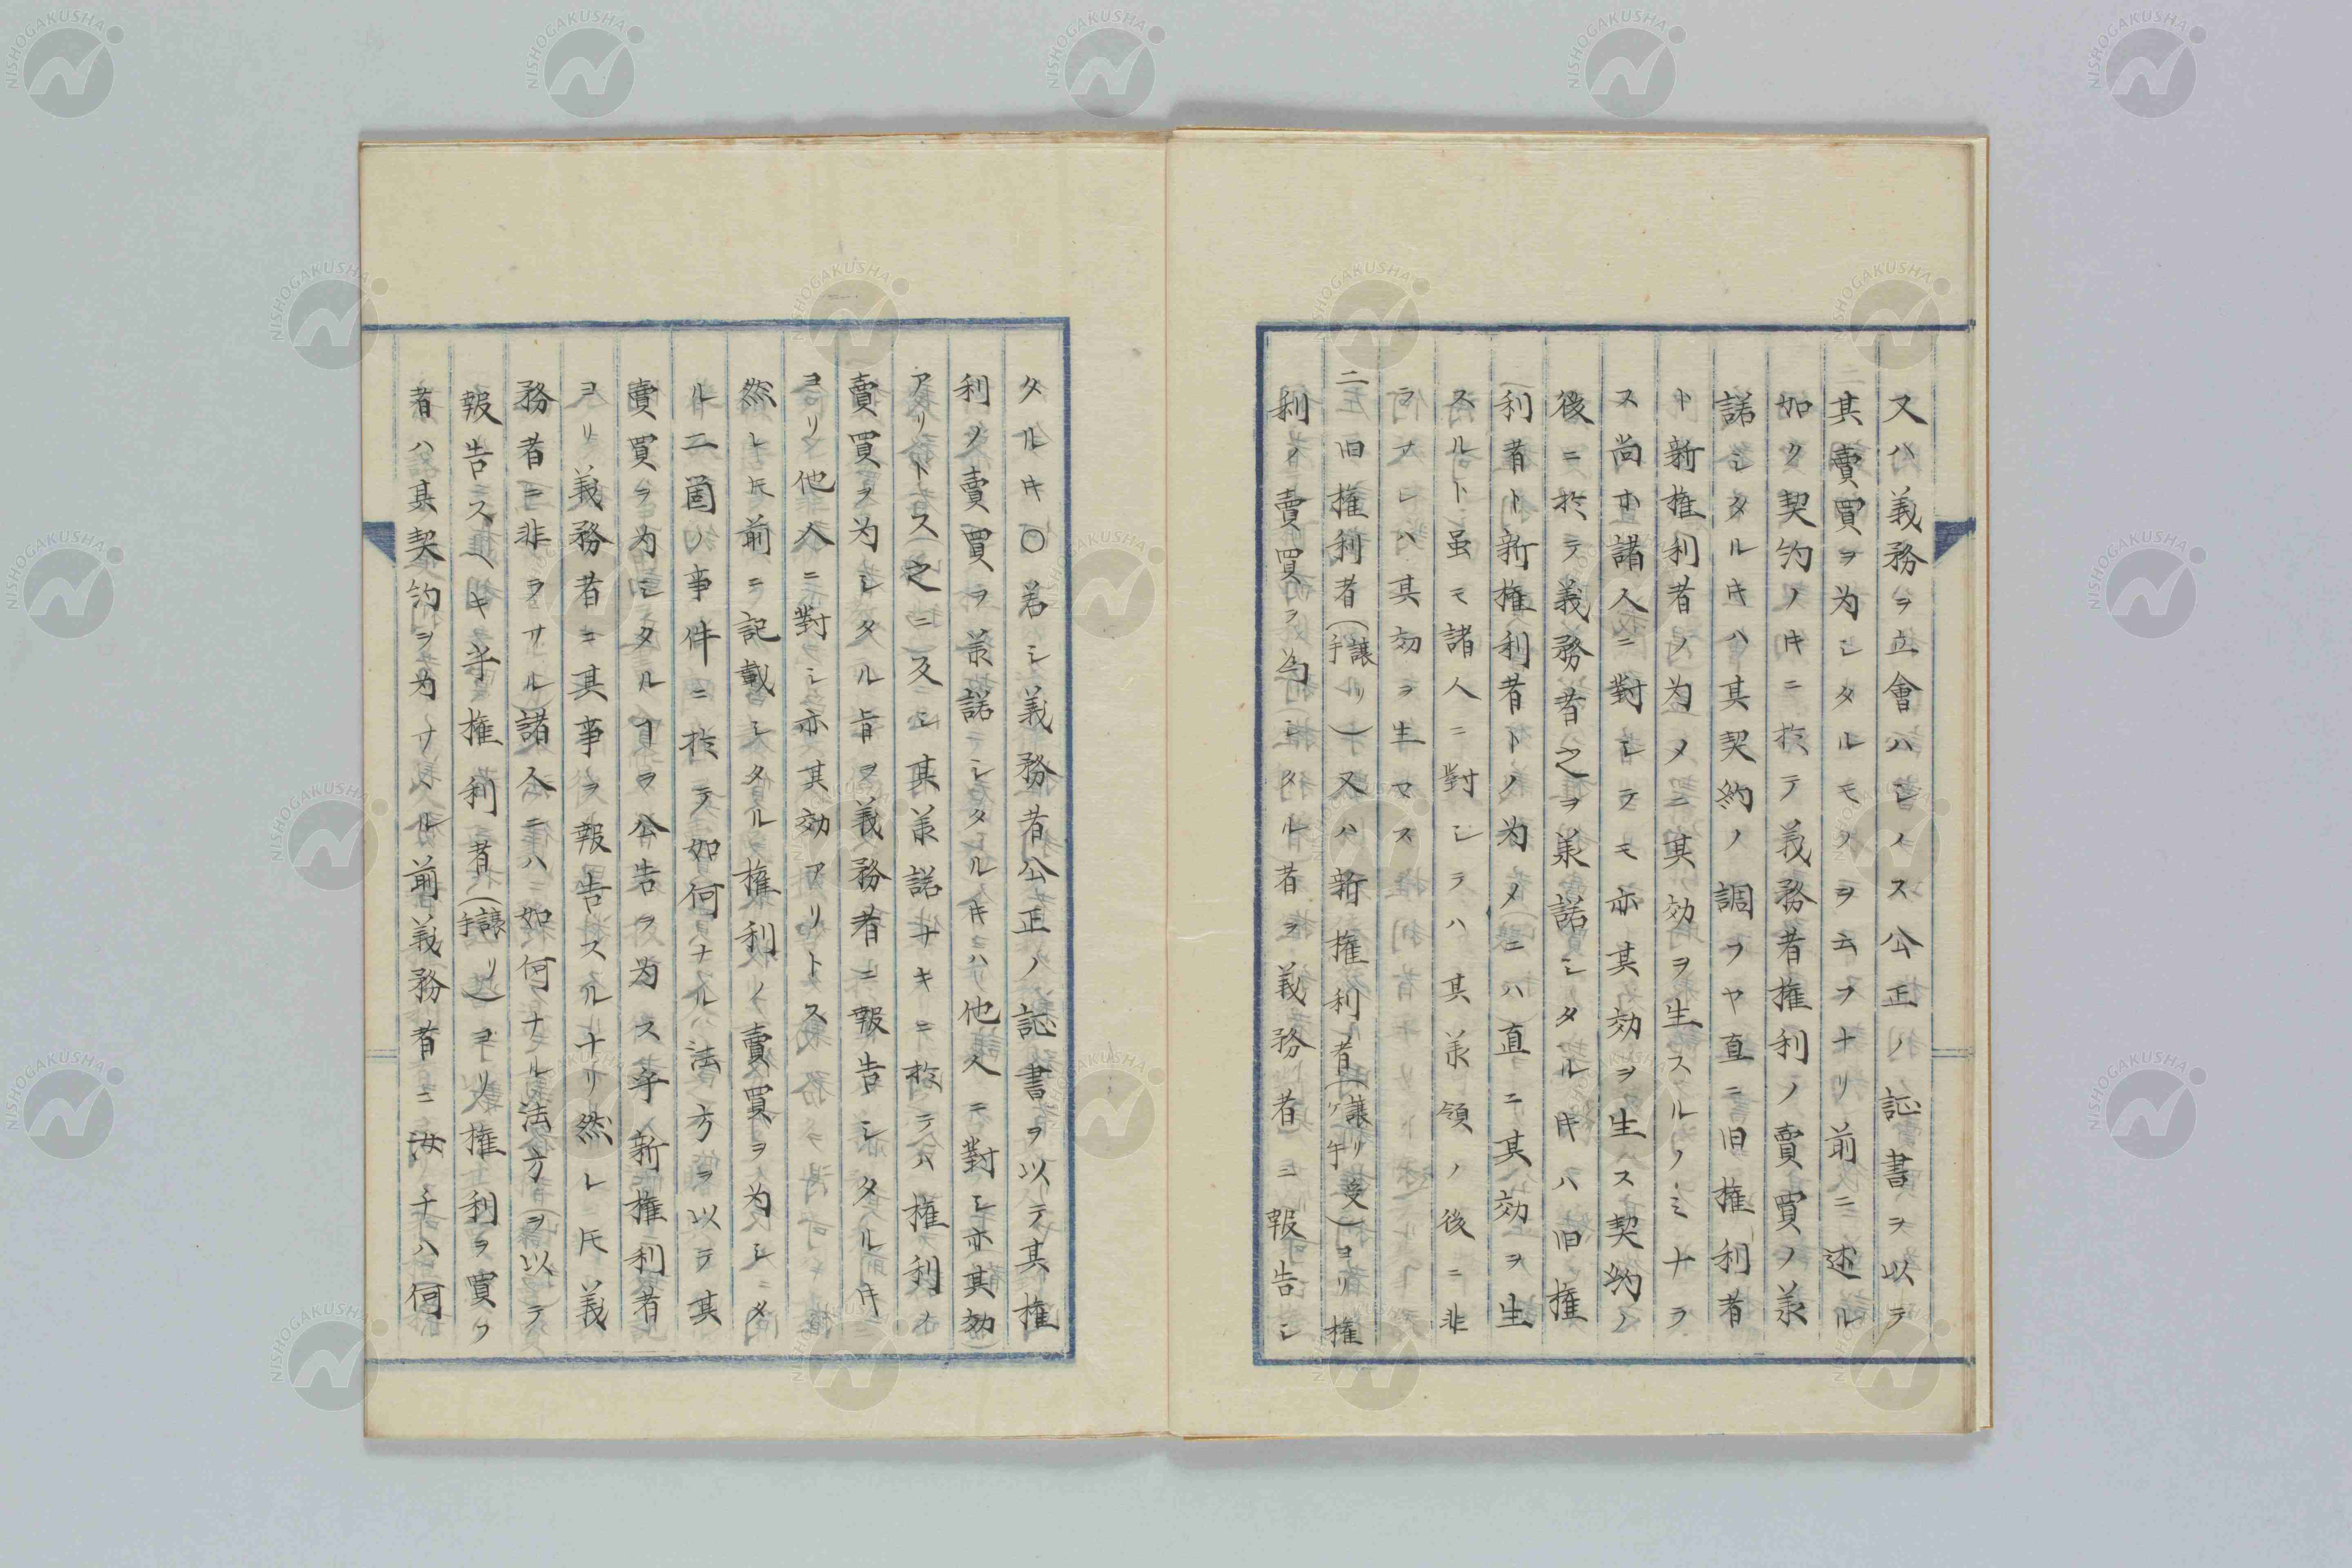 又ハ義務ヲ立會ハシメス公正ノ証書ヲ以テ
其賣買ヲ為シタルモノヲ云フナリ前ニ述ル
如ク契約ノ𬼀ニ於テ義務者権利ノ賣買ノ承
諾シタル𬼀ハ其契約ノ調フヤ直ニ旧権利者
ト新権利者ノ為メニ其効ヲ生スルノミナラ
ス尚ホ諸人ニ對シテモ亦其効ヲ生ス契約ノ
後ニ於テ義務者之ヲ承諾シタル𬼀ハ旧権
利者ト新権利者トノ為メニハ直ニ其効ヲ生
スルト虽モ諸人ニ對シテハ其承領ノ後ニ非
ラナレハ其効ヲ生セス
二旧権利者(譲リ手)又ハ新権利者(譲リ受ケ手)ヨリ権
利ノ賣買ヲ為シタル者ヲ義務者ニ報告シ
タル𬼀〇若シ義務者公正ノ誌書ヲ以テ其権
利ノ賣買ヲ承諾シタル𬼀ハ他人ニ對シ亦其効
アリトス之ニ反シ其承諾ナキニ於テハ権利ノ
賣買ヲ為シタル旨ヲ義務者ニ報告シタル𬼀
ヨリ他人ニ對シ亦其効アリトス
然レ𪜈前ニ記載シタル権利ノ賣買ヲ為シタ
ル二箇ノ事件ニ於テ如何ナル法方ヲ以テ其
賣買ヲ為シタルヿヲ公告ヲ為ス乎新権利者
ヨリ義務者ニ其事ヲ報告スルナリ然レ𪜈義
務者ニ非ヲサル諸人ニハ如何ナル法方ヲ以テ
報告スヘキ乎権利者(譲リ手)ヨリ権利ヲ買ワ
者ハ其契約ヲ為ナル前義務者ニ汝チハ何